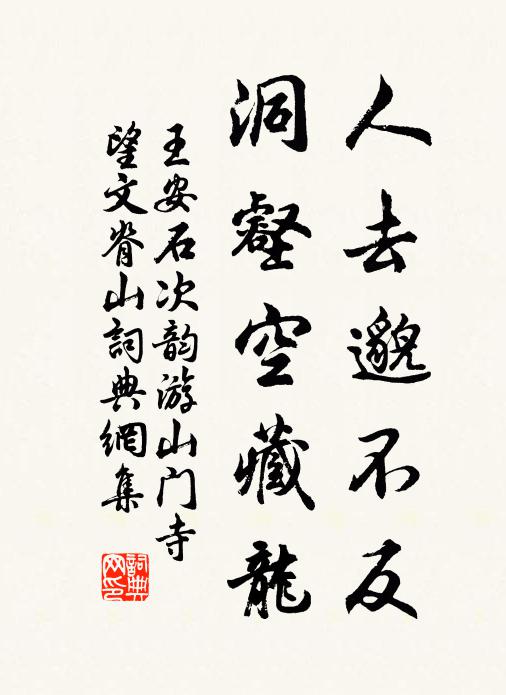 人去邈不反
洞壑空藏龍
王安石次韵游山门寺
望文脊山詞典網集
詞典网印